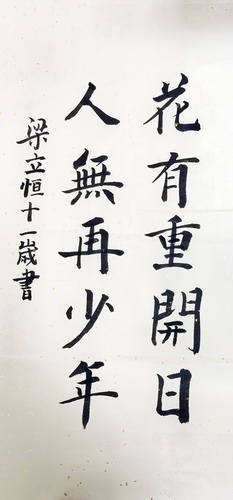 花有重開日
人無再少年
梁立恒十一歲書